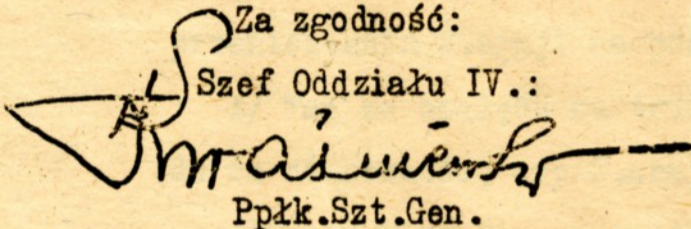 Za zgodność:
Szef Oddziału IV.:
Ppłk.Szt.Gen.